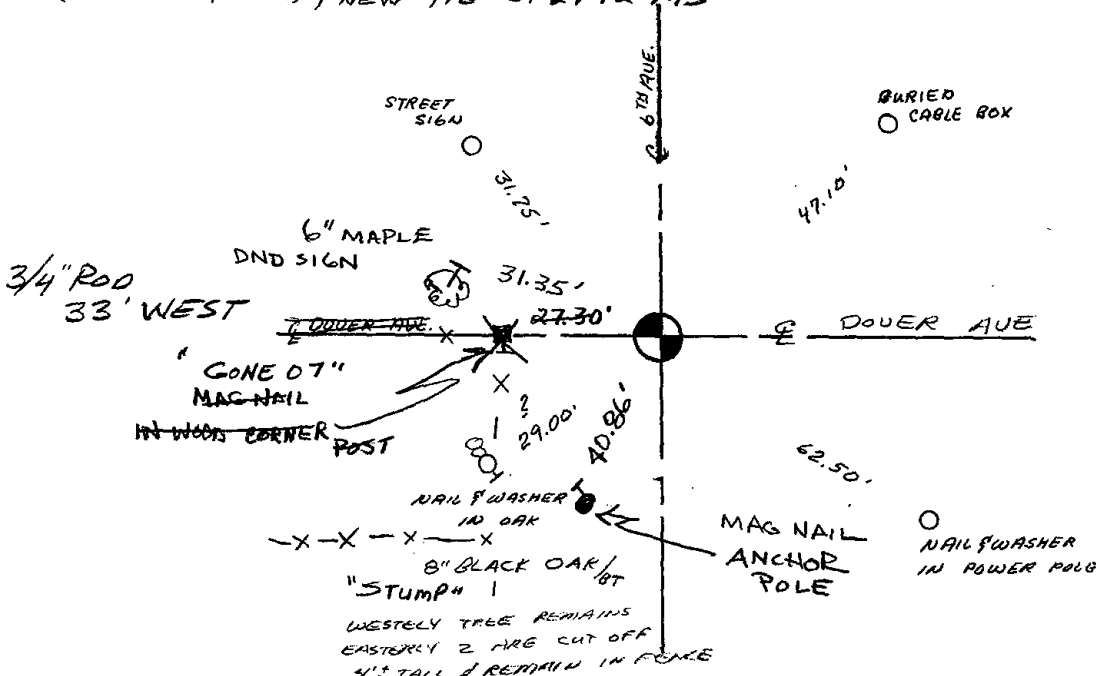 NEW TIE
6TH AVE.
℄
STREET
SIGN
BURIED
CABLE BOX
31.75'
47.10'
6" MAPLE
DND SIGN
31.35'
27.30'
3/4" ROD
33' WEST
℄ DOVER AVE.
℄ DOVER AVE
"GONE 07"
MAG NAIL
IN WOOD CORNER
POST
?
29.00'
40.86'
62.50'
NAIL & WASHER
IN OAK
MAG NAIL
ANCHOR
POLE
NAIL & WASHER
IN POWER POLE
8" BLACK OAK/BT
"STUMP"
WESTELY TREE REMAINS
EASTERLY 2 ARE CUT OFF
4'± TALL & REMAIN IN FENCE